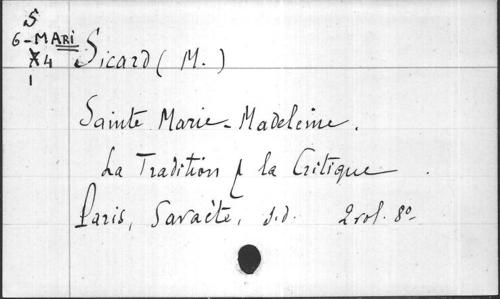 S
6-MARI
X4
1
Sicard (M.)
Sainte Marie-Madeleine.
La Tradition & la Critique.
Paris, Savaète, s.d. 2 vol. 8º